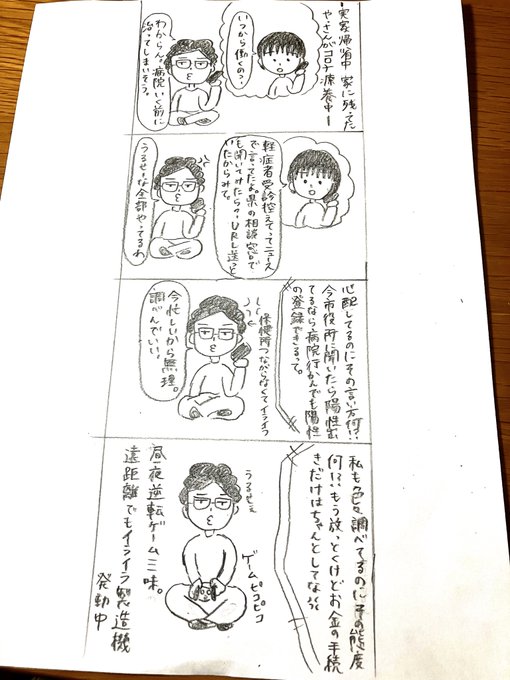 ー実家帰省中 家に残ってた
や・さんがコロナ療養中ー
いつから働くの?
わからん。病院いく前に
治ってしまいそう。
軽症者受診控えてってニュース
で言ってたよ。県の相談窓口で
も聞いてみたら?URL送っと
いたからみて。
うるせーな全部やってるわ
心配してるのにその言い方何!?
今市役所に聞いたら陽性出
てるなら病院行かんでも陽性
の登録できるって。
保健所つながらなくてイライラ
今忙しいから無理。
調べんでいい。
私も色々調べてるのにその態度
何!?もう放っとくけどお金の手続
きだけはちゃんとしてな!!
うるせぇ
ゲームピコピコ
昼夜逆転ゲーム三昧。
遠距離でもイライラ製造機
発動中